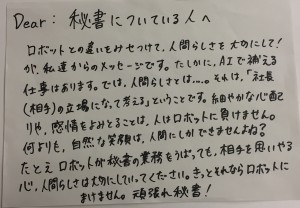 Dear: 秘書についている人へ
ロボットとの違いをみせつけて、人間らしさを大切にして!
が、私達からのメッセージです。たしかに、AIで補える
仕事はあります。では、人間らしさとは…。それは、「社長
(相手)の立場になって考える」ということです。細やかな心配
りや、感情をよみとることは、人はロボットに負けません。
何よりも、自然な笑顔は、人間にしかできませんよね?
たとえロボットが秘書の業務をうばっても、相手を思いやる
心、人間らしさは大切にしていってください。きっとそれならロボットに
まけません。頑張れ秘書!